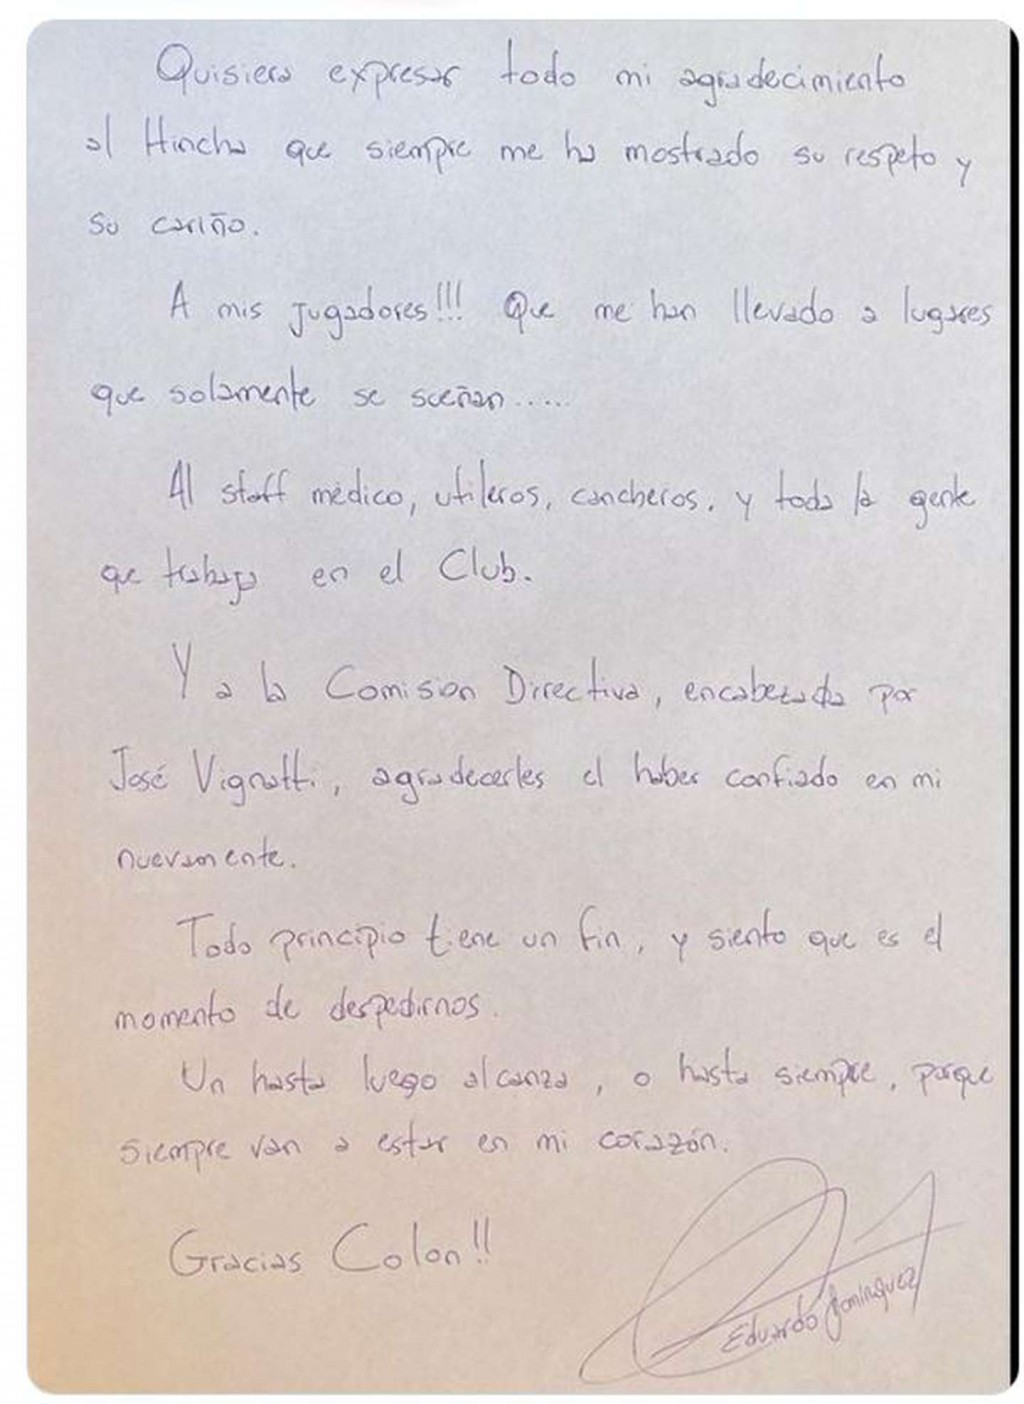 Quisiera expresar todo mi agradecimiento
al Hincha que siempre me ha mostrado su respeto y
su cariño.
A mis jugadores!!! Que me han llevado a lugares
que solamente se sueñan......
Al staff médico, utileros, cancheros, y toda la gente
que trabaja en el Club.
Y a la Comision Directiva, encabezada por
José Vignatti, agradecerles el haber confiado en mi
nuevamente.
Todo principio tiene un fin, y siento que es el
momento de despedirnos.
Un hasta luego alcanza, o hasta siempre, porque
siempre van a estar en mi corazón.
Gracias Colon!!
Eduardo Dominguez